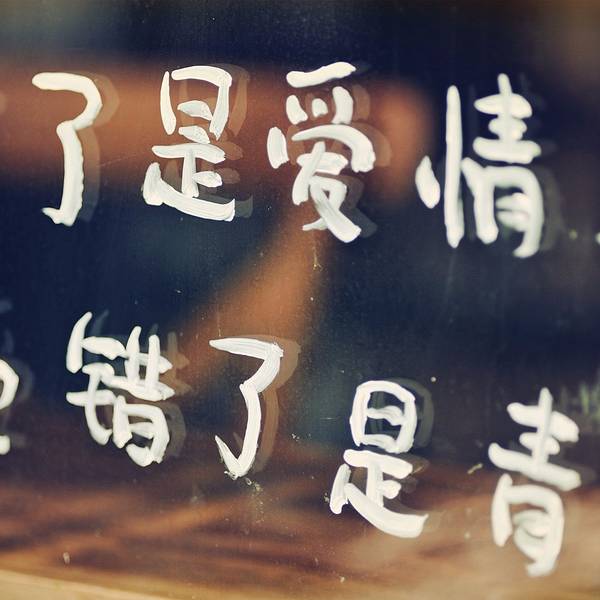 了是爱情
错了是青